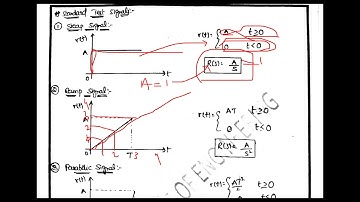 * Standard Test Signals:-
① Step Signal:-
r(t)
A
0
t
r(t)= { A t≥0
0 t<0
R(s)= A/s
1
A=1
② Ramp Signal:-
r(t)
0
1 2 T 3
t
r(t)= { AT t≥0
0 t<0
R(s)= A/s²
③ Parabolic Signal:-
r(t)
A
r(t)= { AT²/2 t≥0
0 t<0
OF ENGINEERING